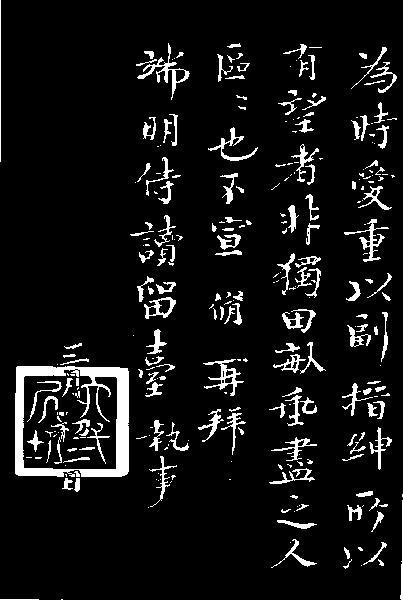 為時愛重以副搢紳所以
有望者非獨田畝垂盡之人
區〻也不宣 脩 再拜
端明侍讀留臺 執事
三月 日